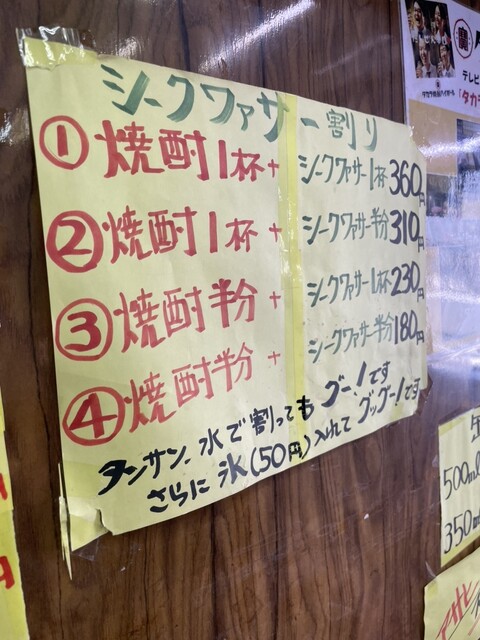 シークワァサー割り
①焼酎1杯+シークワァサー1杯360円
②焼酎1杯+シークワァサー半分310円
③焼酎半分+シークワァサー1杯230円
④焼酎半分+シークワァサー半分180円
タンサン、水で割ってもグー!です
さらに氷(50円)入れてグッグー!です
テレビ
「タカラ
500ml
350ml
アサヒ